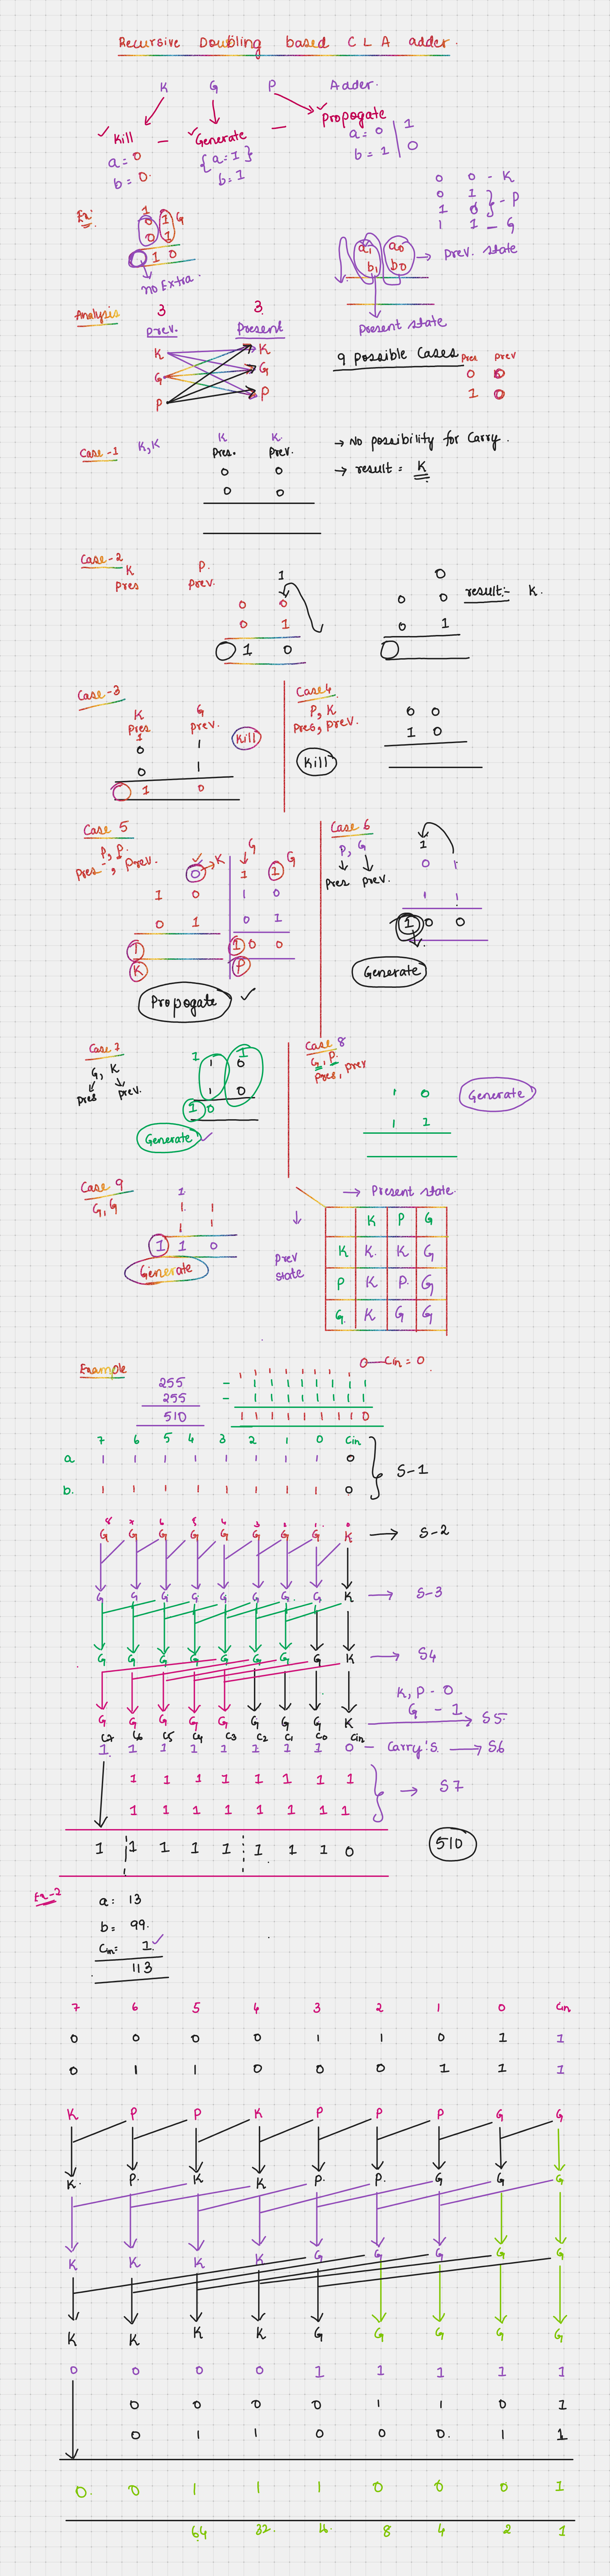 Recursive Doubling based CLA adder.
K G P Adder.
✓ Kill — ✓ Generate — ✓ Propogate
a=0 {a=1} a=0 | 1
b=0. b=1 b=1 | 0
0 0 - K
0 1 } - P
1 0
1 1 - G
Ex:
1
0 1 G
0 1
0 1 0
no Extra.
a1 a0
b1 b0 → Prev. state
Present state
Analysis 3 3
prev. Present
K K
G G
P P
9 Possible Cases
Pres Prev
0 0
1 0
Case-1 K,K
K K
Pres. Prev.
0 0
0 0
→ No possibility for Carry.
→ result = K
Case-2
K P.
Pres prev.
1
0 0
0 1
0 1 0
0
0 0
0 1
result:- K.
Case-3
K G
Pres prev.
1
0 1
0 1
1 0
Kill
Case4
P, K
Pres, prev.
0 0
1 0
Kill
Case 5
P, P.
Pres, Prev.
0 → K
1 0
0 1
1
K
G
1 1 G
1 0
0 1
1 0 0
P
Propogate ✓
Case 6
P, G
Pres prev.
1
0 1
1 1
1 0 0
Generate
Case 7
G, K
Pres prev.
1 1
1 0
1 0
1 0
Generate ✓
Case 8
G, P.
Pres, prev
1 0
1 1
Generate
Case 9
G, G
1
1 1
1 1
1 1 0
Generate
→ Present state.
↓ Prev state
K P G
K K. K G
P K P. G
G K G G
Example
0 — Cin = 0
255 - 1 1 1 1 1 1 1 1
255 - 1 1 1 1 1 1 1 1
510 1 1 1 1 1 1 1 1 0
7 6 5 4 3 2 1 0 Cin
a 1 1 1 1 1 1 1 1 0
b. 1 1 1 1 1 1 1 1 0
} S-1
G G G G G G G G K → S-2
G G G G G G G G K → S-3
G G G G G G G G K → S4
K, P - 0
G - 1
G G G G G G G G K → S5
C7 C6 C5 C4 C3 C2 C1 C0 Cin
1 1 1 1 1 1 1 1 0 - Carry's. → S6
1 1 1 1 1 1 1 1
1 1 1 1 1 1 1 1
} → S7
1 1 1 1 1 1 1 1 0
510
Ex-2
a: 13
b = 99.
Cin = 1. ✓
113
7 6 5 4 3 2 1 0 Cin
0 0 0 0 1 1 0 1 1
0 1 1 0 0 0 1 1 1
K P P K P P P G G
K. P. K K P. P. G G G
K K K K G G G G G
K K K K G G G G G
0 0 0 0 1 1 1 1 1
0 0 0 0 1 1 0 1
0 1 1 0 0 0. 1 1
0. 0 1 1 1 0 0 0 1
64 32. 16. 8 4 2 1